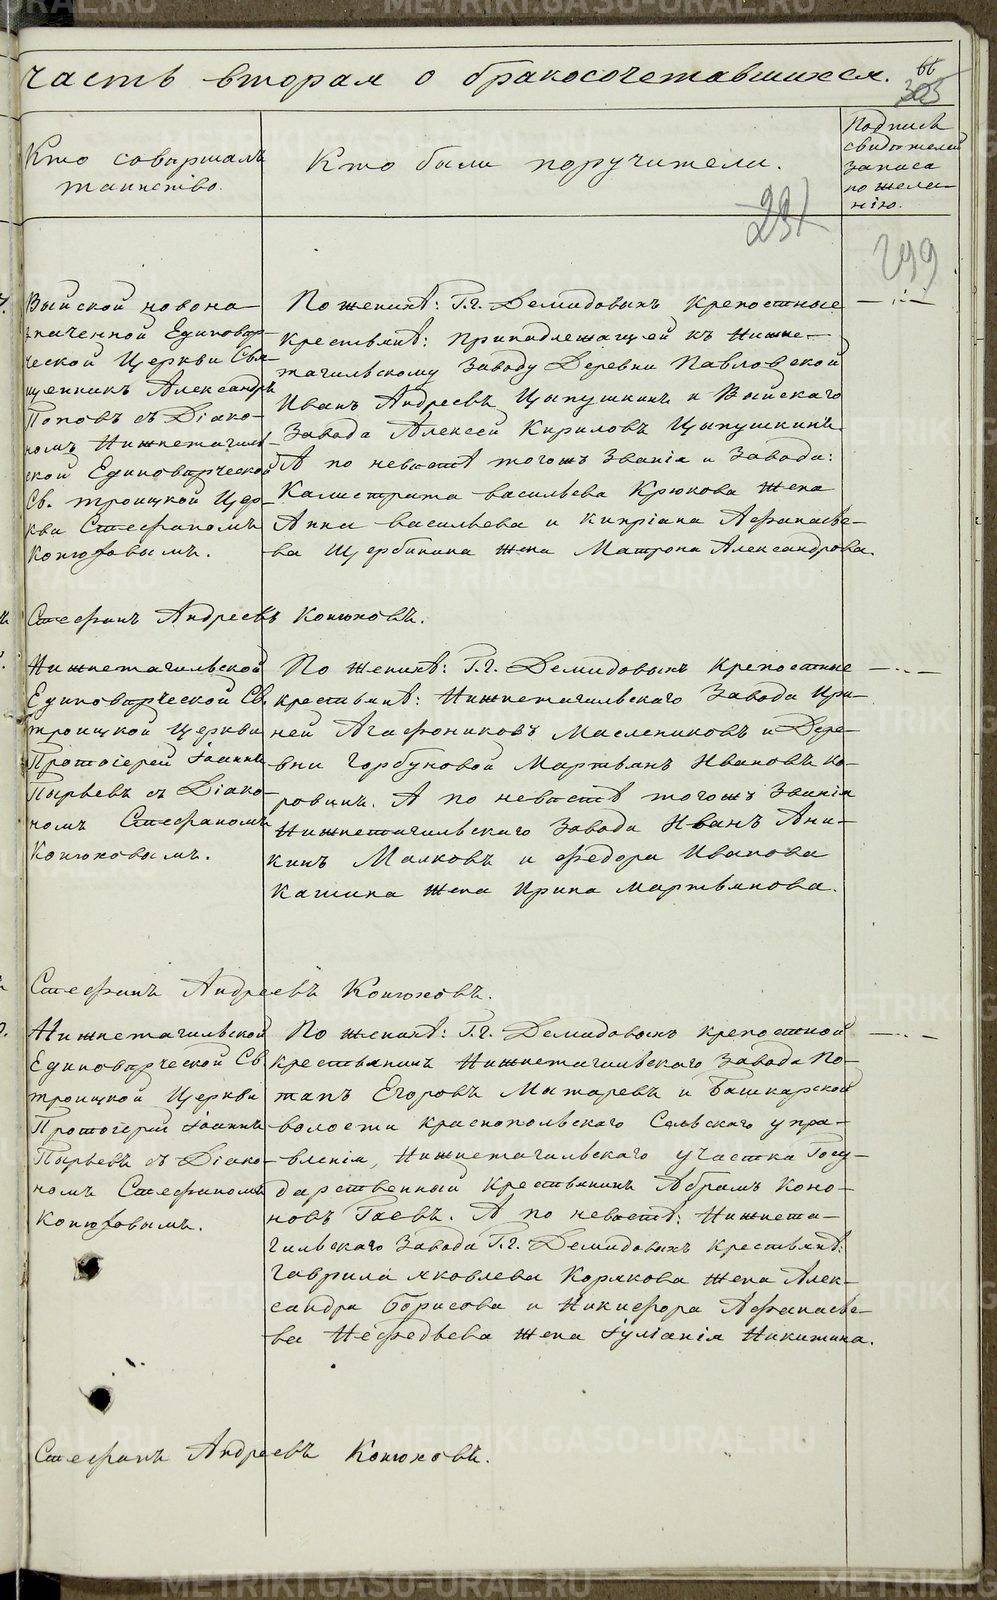 часть вторая о бракосочетавшихся.
305
Кто совершалъ
таинство.
Кто были поручители.
Подпись
свидѣтелей
записа
по жела-
нію.
231
299
Выйской новона-
значенной Единовѣр-
ческой Церкви Свя-
щенникъ Александръ
Поповъ съ Діако-
номъ Нижнетагиль-
ской Единовѣрческой
Св. троицкой Цер-
кви Стефаномъ
Конюховымъ.
По женихѣ: Г.г. Демидовыхъ крепостные
крестьянѣ: принадлежащей къ Нижне-
тагильскому Заводу Деревни Павловской
Иванъ Андреевъ Цыпушкинъ и Выйскаго
Завода Алексей Кириловъ Цыпушкинъ.
А по невестѣ тогожъ Званія и Завода:
Калистрата васильева Крюкова жена
Анна васильева и Кипріана Афанасье-
ва Щербинина жена Матрона Александрова.
Стефанъ Андреевъ Конюховъ.
Нижнетагильской
Единовѣрческой Св.
троицкой Церкви
Протоіерей Іоаннъ
Пырьевъ съ Діако-
номъ Стефаномъ
Конюховымъ.
По женихѣ: Г.г. Демидовыхъ крепостные
крестьянѣ: Нижнетагильскаго Завода Ири-
ней Агафониковъ Маслениковъ и Дере-
вни Горбуновой Мартьянъ Ивановъ ко-
ровинъ. А по невестѣ тогожъ Званія
Нижнетагильскаго Завода Иванъ Ани-
кинъ Малковъ и Федора Иванова
Кашина жена Ирина Мартьянова.
Стефанъ Андреевъ Конюховъ.
Нижнетагильской
Единовѣрческой Св.
троицкой Церкви
Протоіерей Іоаннъ
Пырьевъ съ Діако-
номъ Стефаномъ
Конюховымъ.
По женихѣ: Г.г. Демидовыхъ крепостной
крестьянинъ Нижнетагильскаго Завода По-
тапъ Егоровъ Матаревъ и Башкарской
волости Краснопольскаго Сельскаго упра-
вленія, Нижнетагильскаго участка Госу-
дарственный крестьянинъ Абрамъ Коно-
новъ Гаевъ. А по невестѣ: Нижнета-
гильскаго Завода Г.г. Демидовыхъ крестьянѣ:
Гаврила яковлева Корякова жена Алек-
сандра Борисова и Никифора Афанасье-
ва Нефедьева жена Іуліанія Никитина.
Стефанъ Андреевъ Конюховъ.